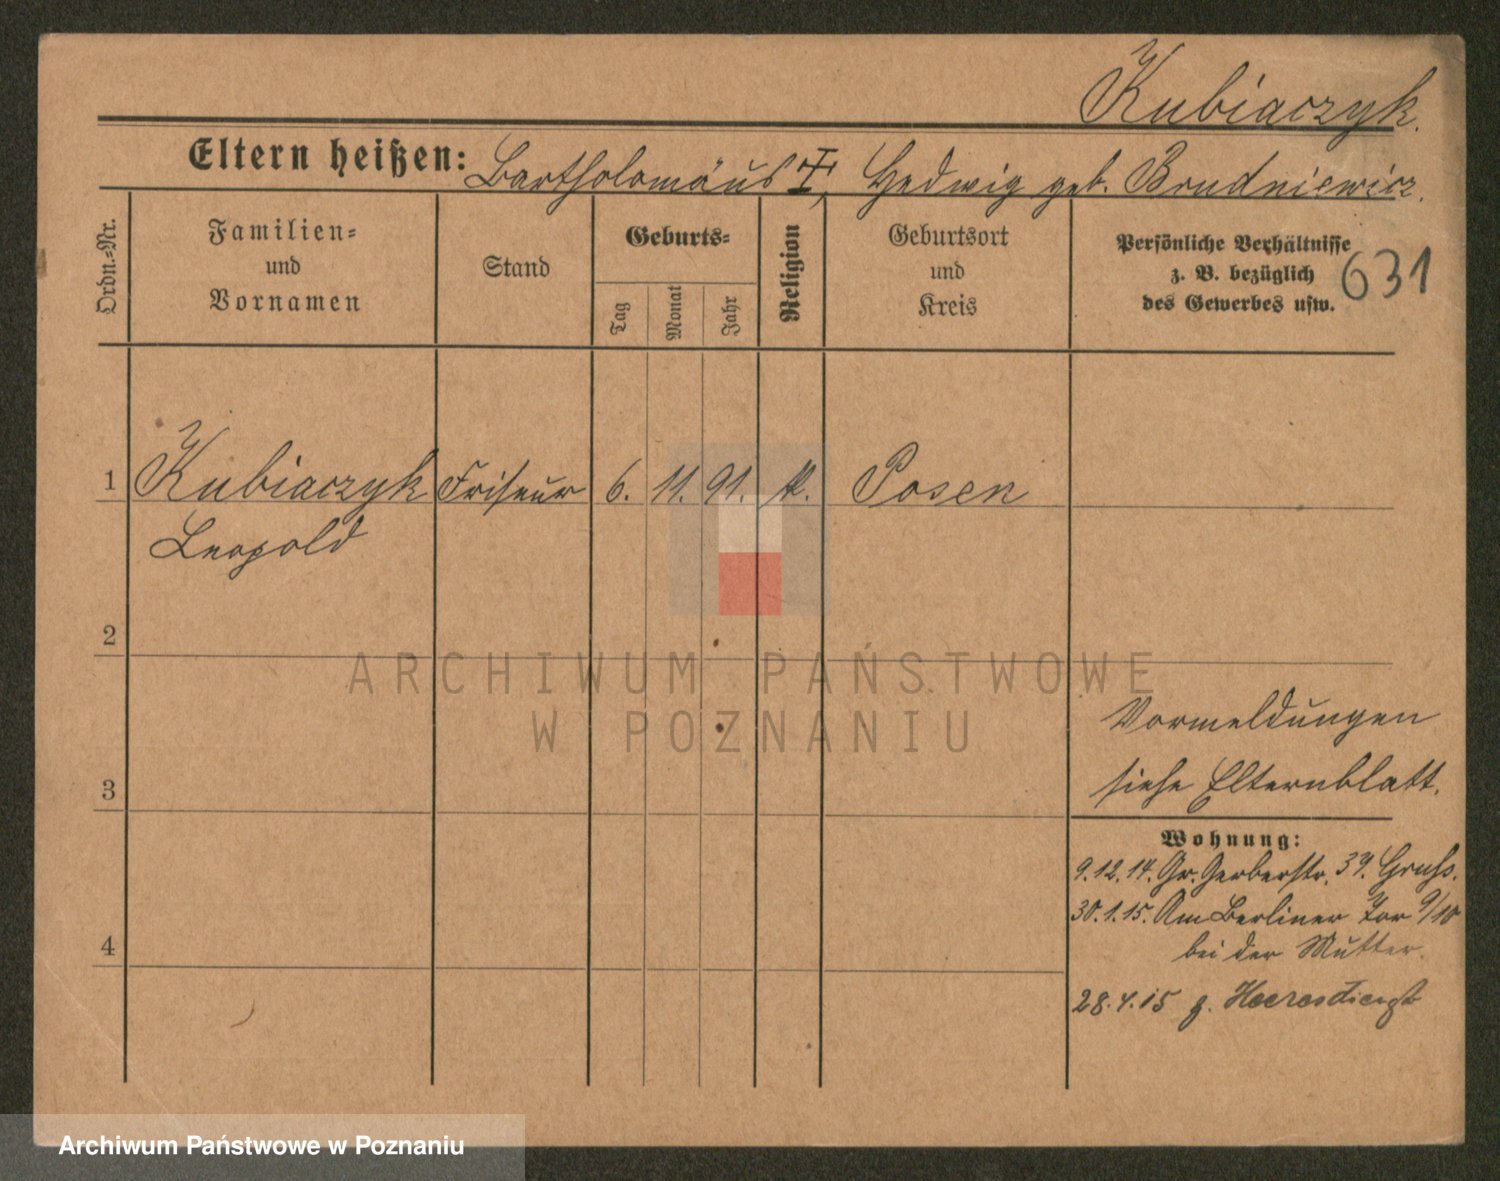 Kubiaczyk.
Eltern heißen: Bartholomäus †, Hedwig geb. Brudniewicz.
Ordn.-Nr.
Familien-
und
Vornamen
Stand
Geburts-
Tag
Monat
Jahr
Religion
Geburtsort
und
Kreis
Persönliche Verhältnisse
z. B. bezüglich
des Gewerbes usw.
631
1 Kubiaczyk Friseur 6. 11. 91. k. Posen
Leopold
2
ARCHIWUM PAŃSTWOWE
W POZNANIU
Vormeldungen
siehe Elternblatt.
3
Wohnung:
9.12.14. Gr. Gerberstr. 39.
30.1.15. Am Berliner Tor 9/10
bei der Mutter.
4
28.4.15 z. Heeresdienst
Archiwum Państwowe w Poznaniu